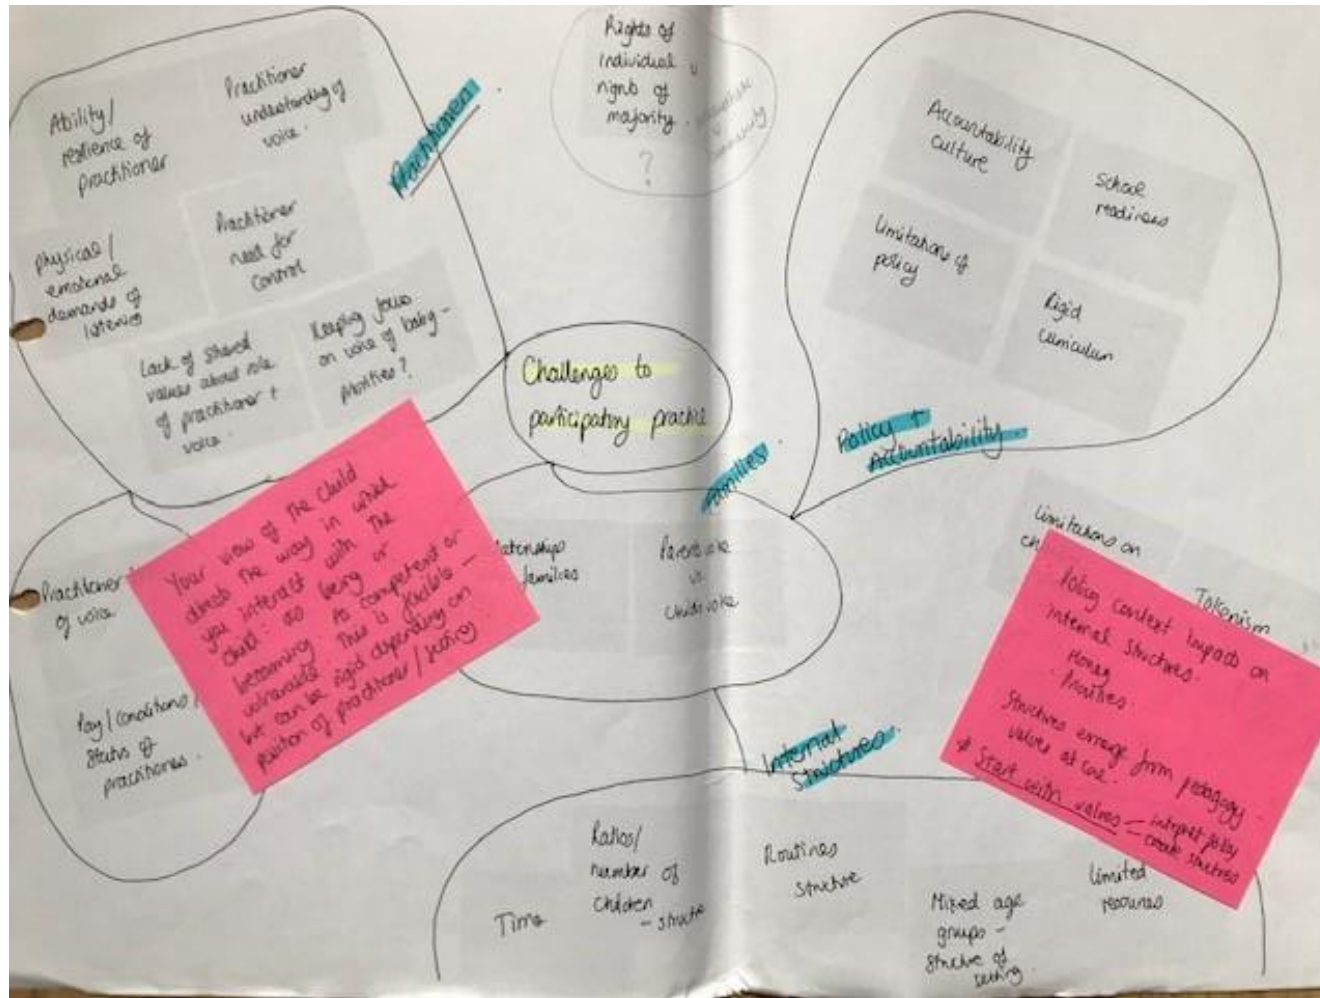 Ability/
reslience of
practitioner
Practitioner
understanding of
voice.
Practitioners
physical/
emotional
demands of
listening
Practitioner
need for
control
Lack of shared
values about role
of practitioner +
voice.
Keeping focus
on voice of baby -
priorities?
Rights of
individual v
rights of
majority.
?
Accountability
culture
School
readiness
Limitations of
policy
Rigid
curriculum
Policy +
Accountability
Challenges to
participatory practice
Families
families
Parents voice
v.
childs voice
Practitioner
of voice
Pay/conditions/
status of
practitioners.
Your view of the child
directs the way in which
you interact with the
child: as being or
becoming. As competent or
vulnerable. This is flexible -
but can be rigid depending on
position of practitioner/setting
Limitations on
ch
Tokenism
Policy context impacts on
internal structures.
Money
Priorities.
Structures emerge from pedagogy -
values at core.
* Start with values - interpret policy
- create structures
Internal
Structures.
Time
Ratios/
number of
children
- structure
Routines
structure
Mixed age
groups -
structure of
setting.
Limited
resources